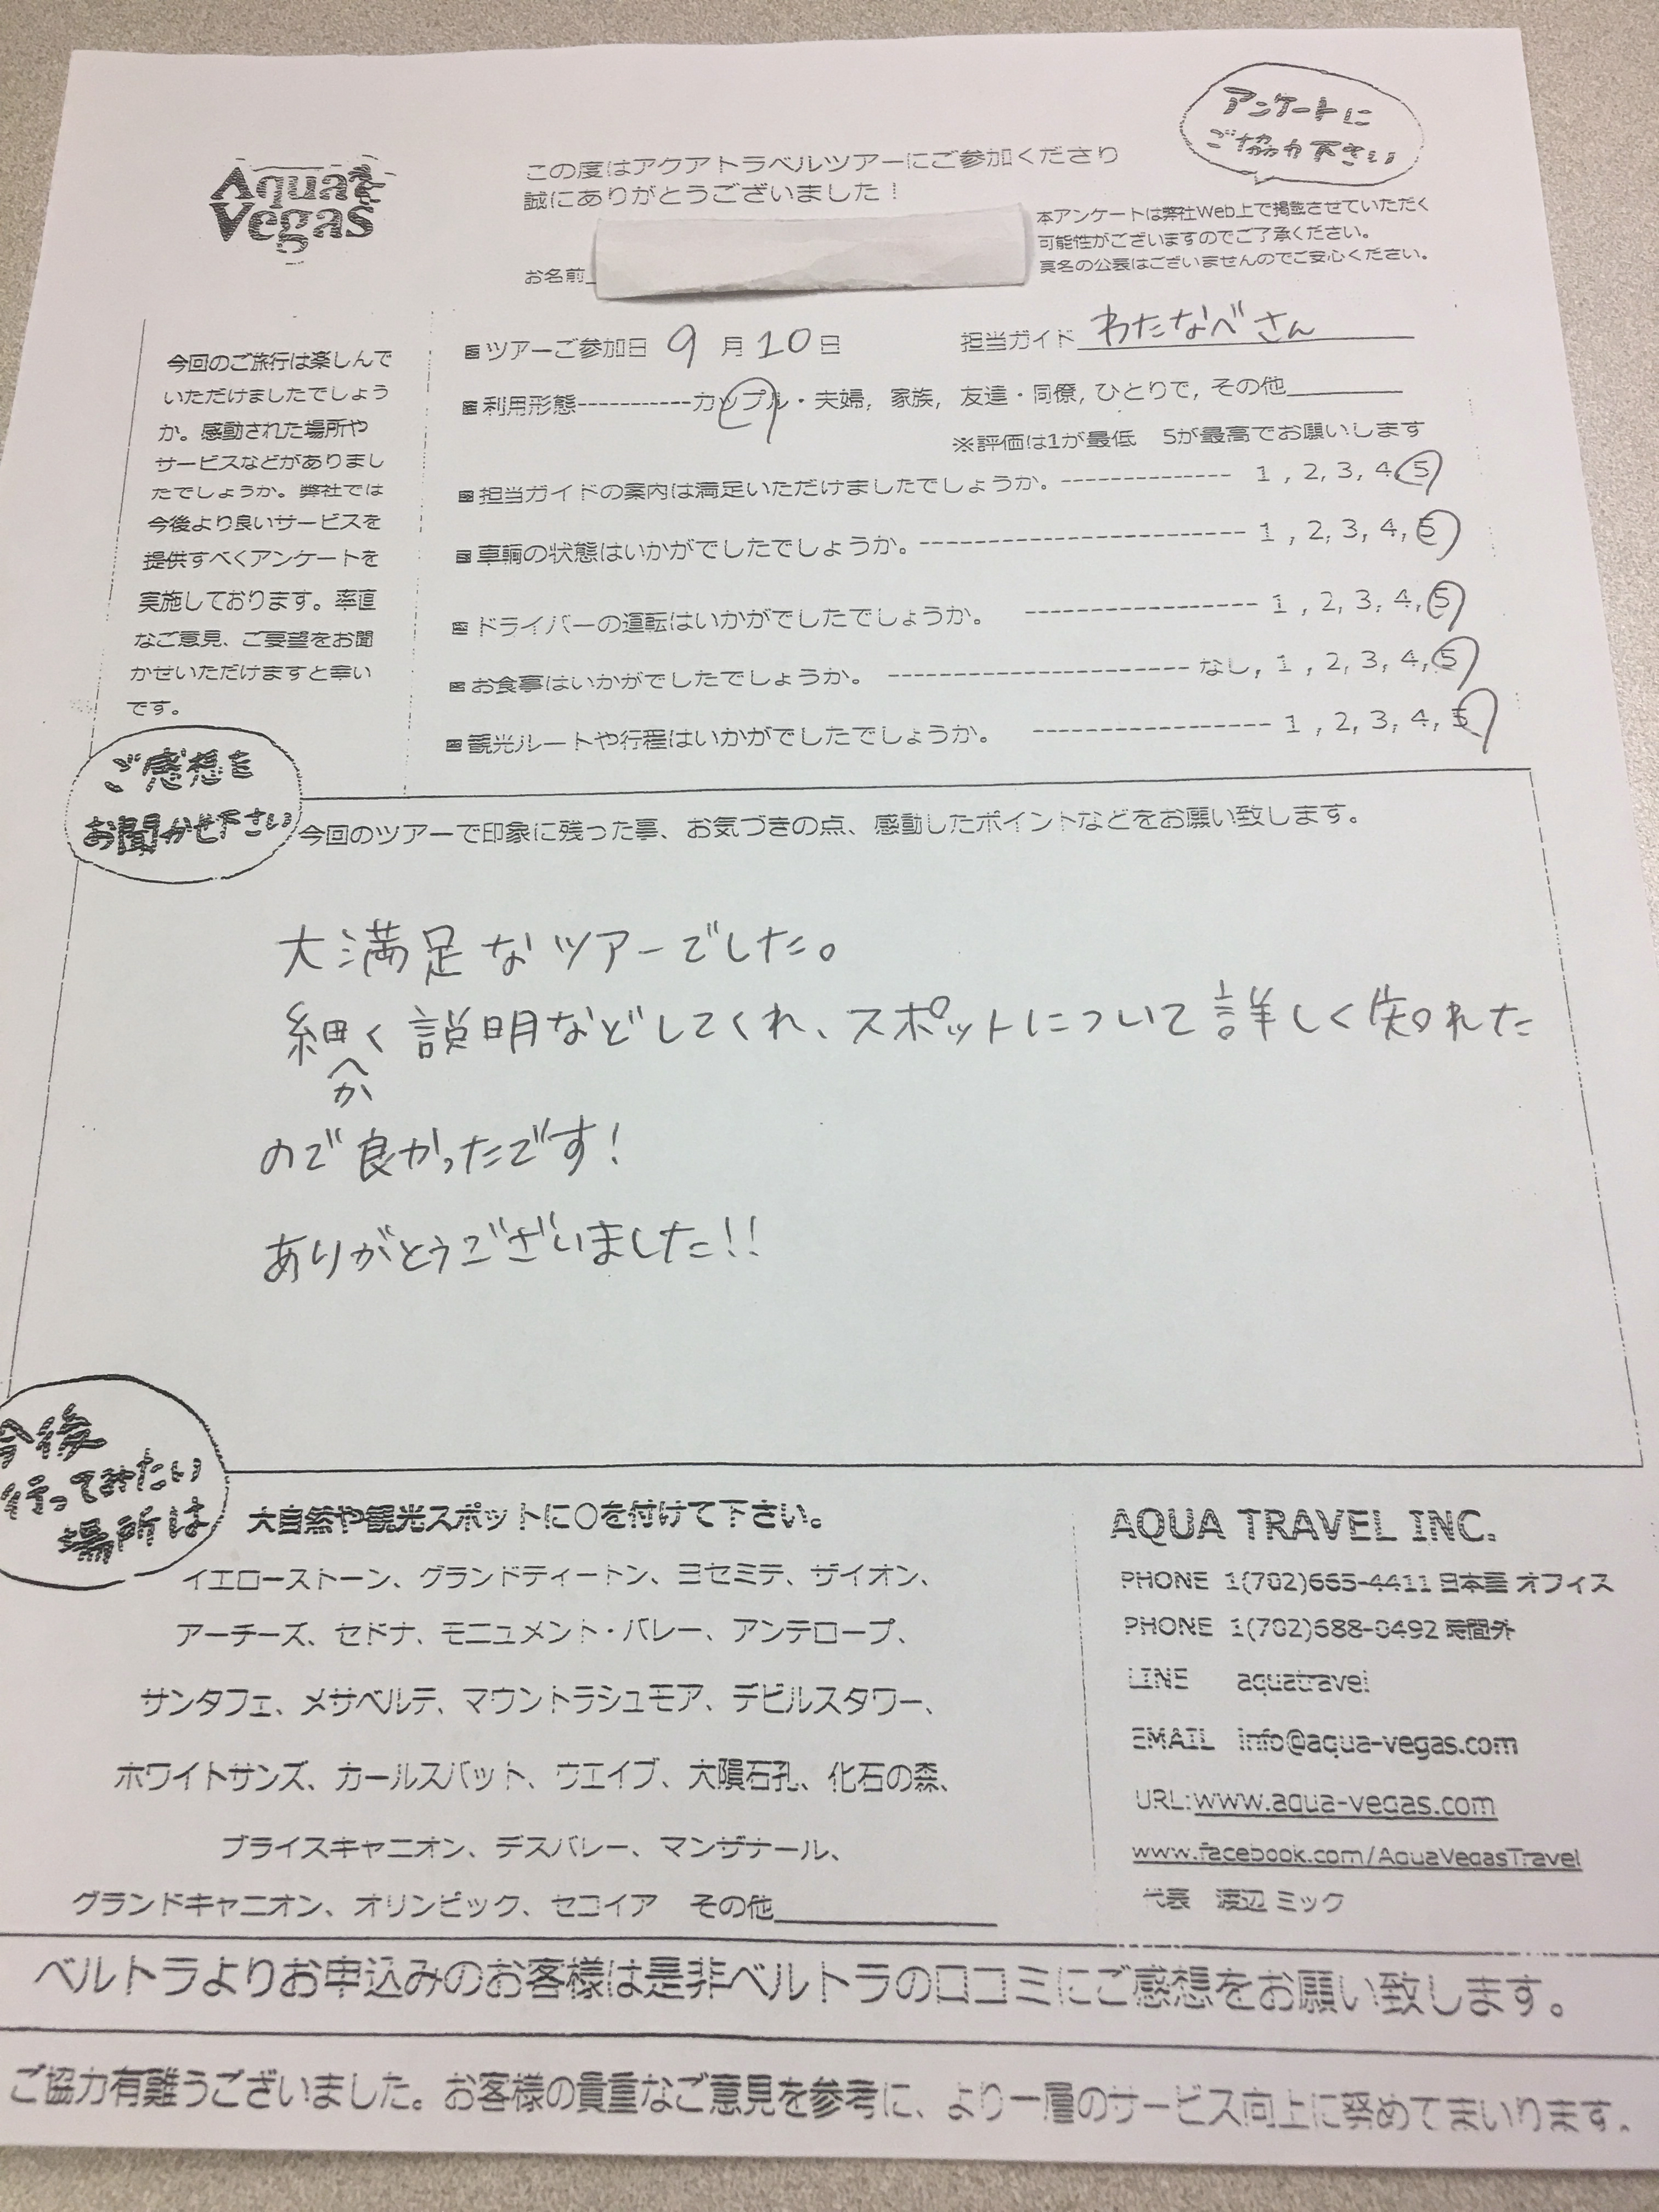 Aqua
Vegas
この度はアクアトラベルツアーにご参加くださり
誠にありがとうございました！
アンケートに
ご協力下さい
本アンケートは弊社Web上で掲載させていただく
可能性がございますのでご了承ください。
真名の公表はございませんのでご安心ください。
お名前
今回のご旅行は楽しんで
いただけましたでしょう
か。感動された場所や
サービスなどがありまし
たでしょうか。弊社では
今後より良いサービスを
提供すべくアンケートを
実施しております。率直
なご意見、ご要望をお聞
かせいただけますと幸い
です。
ツアーご参加日 9 月 10 日 担当ガイド わたなべさん
利用形態-----------カップル・夫婦, 家族, 友達・同僚, ひとりで, その他
※評価は1が最低 5が最高でお願いします
担当ガイドの案内は満足いただけましたでしょうか。-------------- 1 , 2, 3, 4, 5
車輌の状態はいかがでしたでしょうか。--------------------------- 1 , 2, 3, 4, 5
ドライバーの運転はいかがでしたでしょうか。 ------------------- 1 , 2, 3, 4, 5
お食事はいかがでしたでしょうか。 ------------------------ なし, 1 , 2, 3, 4, 5
観光ルートや行程はいかがでしたでしょうか。 ------------------- 1 , 2, 3, 4, 5
ご感想を
お聞かせ下さい
今回のツアーで印象に残った事、お気づきの点、感動したポイントなどをお願い致します。
大満足なツアーでした。
細かく説明などしてくれ、スポットについて詳しく知れた
ので良かったです！
ありがとうございました!!
今後
行ってみたい
場所は
大自然や観光スポットに○を付けて下さい。
イエローストーン、グランドティートン、ヨセミテ、ザイオン、
アーチーズ、セドナ、モニュメント・バレー、アンテロープ、
サンタフェ、メサベルテ、マウントラシュモア、デビルスタワー、
ホワイトサンズ、カールスバット、ウエイブ、大隕石孔、化石の森、
ブライスキャニオン、デスバレー、マンザナール、
グランドキャニオン、オリンピック、セコイア その他
AQUA TRAVEL INC.
PHONE 1(702)665-4411 日本語 オフィス
PHONE 1(702)688-0492 時間外
LINE aquatravel
EMAIL info@aqua-vegas.com
URL:www.aqua-vegas.com
www.facebook.com/AquaVegasTravel
代表 渡辺 ミック
ベルトラよりお申込みのお客様は是非ベルトラの口コミにご感想をお願い致します。
ご協力有難うございました。お客様の貴重なご意見を参考に、より一層のサービス向上に努めてまいります。